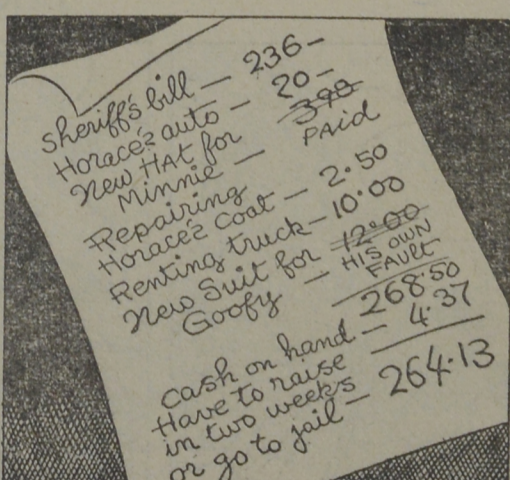 Sheriff's bill — 236-
Horace's auto — 20-
New HAT for 3.98
Minnie — PAid
Repairing
Horace's Coat — 2.50
Renting truck — 10.00
New Suit for 12.00
Goofy — HIS OWN
FAULT
268.50
Cash on hand — 4.37
Have to raise
in two weeks
or go to jail — 264.13